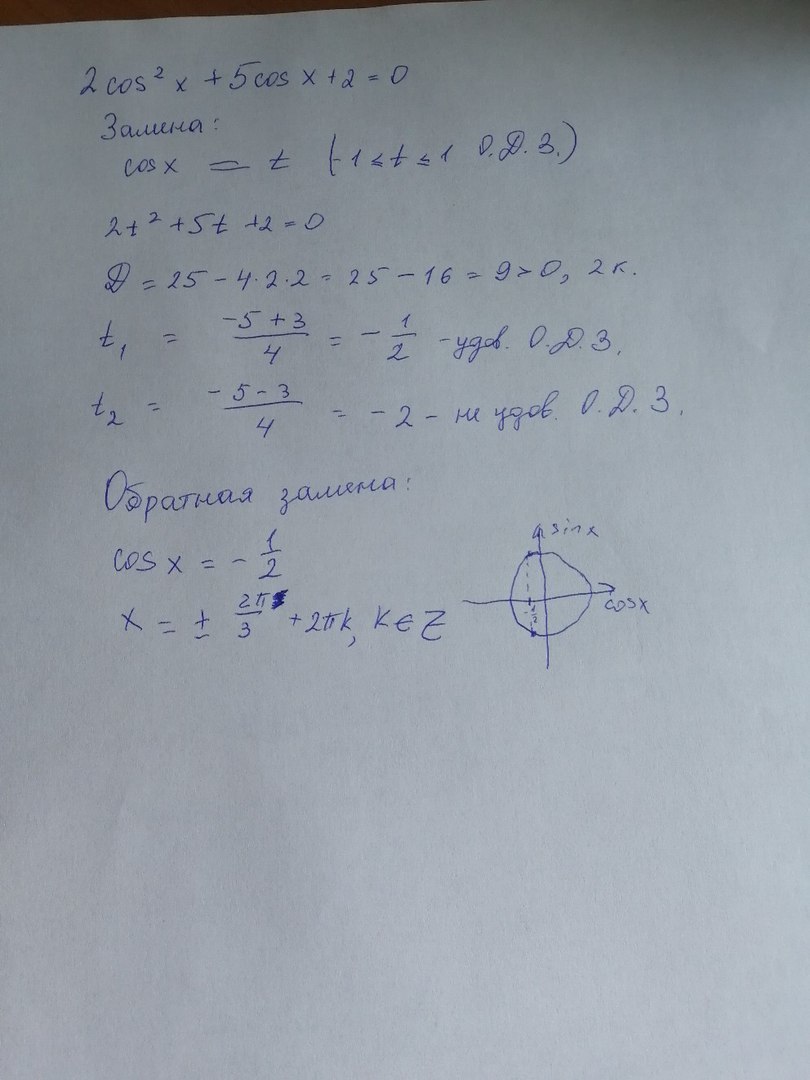 2cos² x + 5cos x + 2 = 0
Замена:
cos x = t (-1 ≤ t ≤ 1 О.Д.З.)
2t² + 5t + 2 = 0
D = 25 - 4·2·2 = 25 - 16 = 9 > 0, 2 к.
t₁ = (-5 + 3)/4 = -1/2 - удов. О.Д.З.
t₂ = (-5 - 3)/4 = -2 - не удов. О.Д.З.
Обратная замена:
cos x = -1/2
x = ± 2π/3 + 2πk, k ∈ Z
sin x
cos x
-1/2